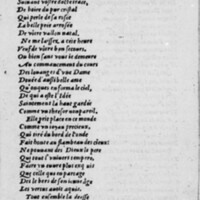 Suivant vostre docte trace,
De boire du pur cristal
Qui perle de sa
La belle pree arrosée
De vostre vallon natal,
Ne me laissez, a ceste heure
Veuf de vostre bon secours,
Ou bien sans vous ie demeure
Au commancement du cours
Des louanges d'une Dame
Douée d'aussi belle ame
Qu'onques en forma le ciel,
De qui a esté l'
Sainctement la haut gardée
Comme un thresor
Elle prit place en ce monde
Comme un ioyau precieux,
Qui tiré du bord de l'onde
Fait honte au flambeau des cieux:
Ne pouvant des Dieux le pere
Qui tout l' univers tempere,
Faire ça voir plus
Que celle qui en partage
Des le bers de son ieune age
Les vertus avoit aquis.
Tout ensemble la